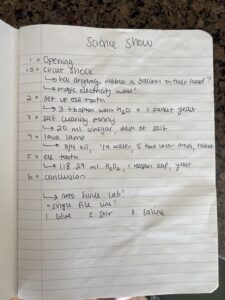 Science Show
1.0 Opening
1.5 Circuit Stick
↳ has anybody rubbed a balloon on their head?
↳ magic electricity wand!
2.0 Set up ele tooth
↳ 3 tbspoon warm H₂O + 1 packet yeast
3.0 self cleaning penny
↳ 20 ml vinegar, dash of salt
4.0 lava lamp
↳ 3/4 oil, 1/4 water, 5 food color drops, tablet
5.0 ele tooth
↳ 118.29 ml H₂O₂, 1 tbspoon soap, yeast
6.0 conclusion
↳ into slime lab!
single file line!
1. Glue 2. Stir 3. Saline